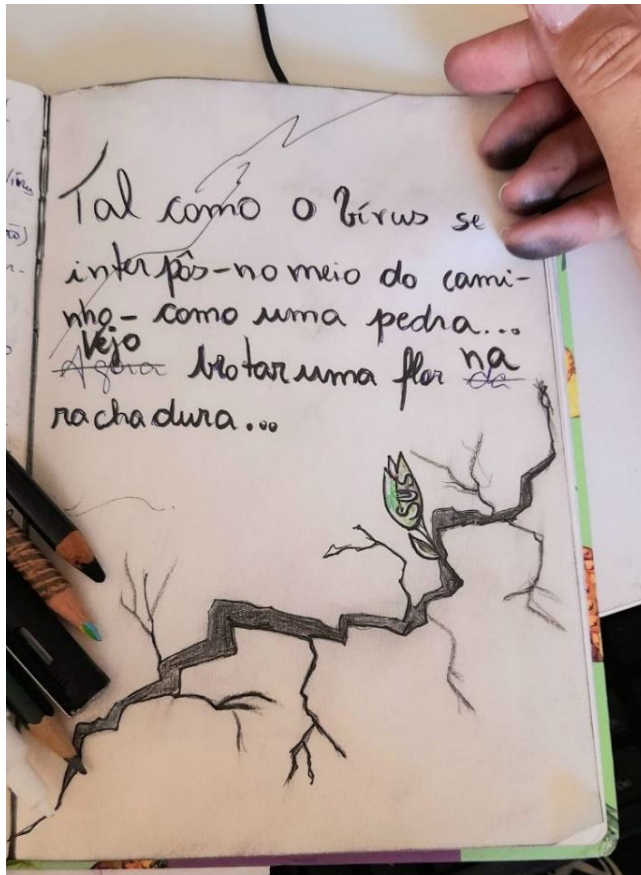 Tal como o vírus se
interpôs-no meio do cami-
nho- como uma pedra...
Vejo
Agora brotar uma flor na
da
rachadura...
SUS